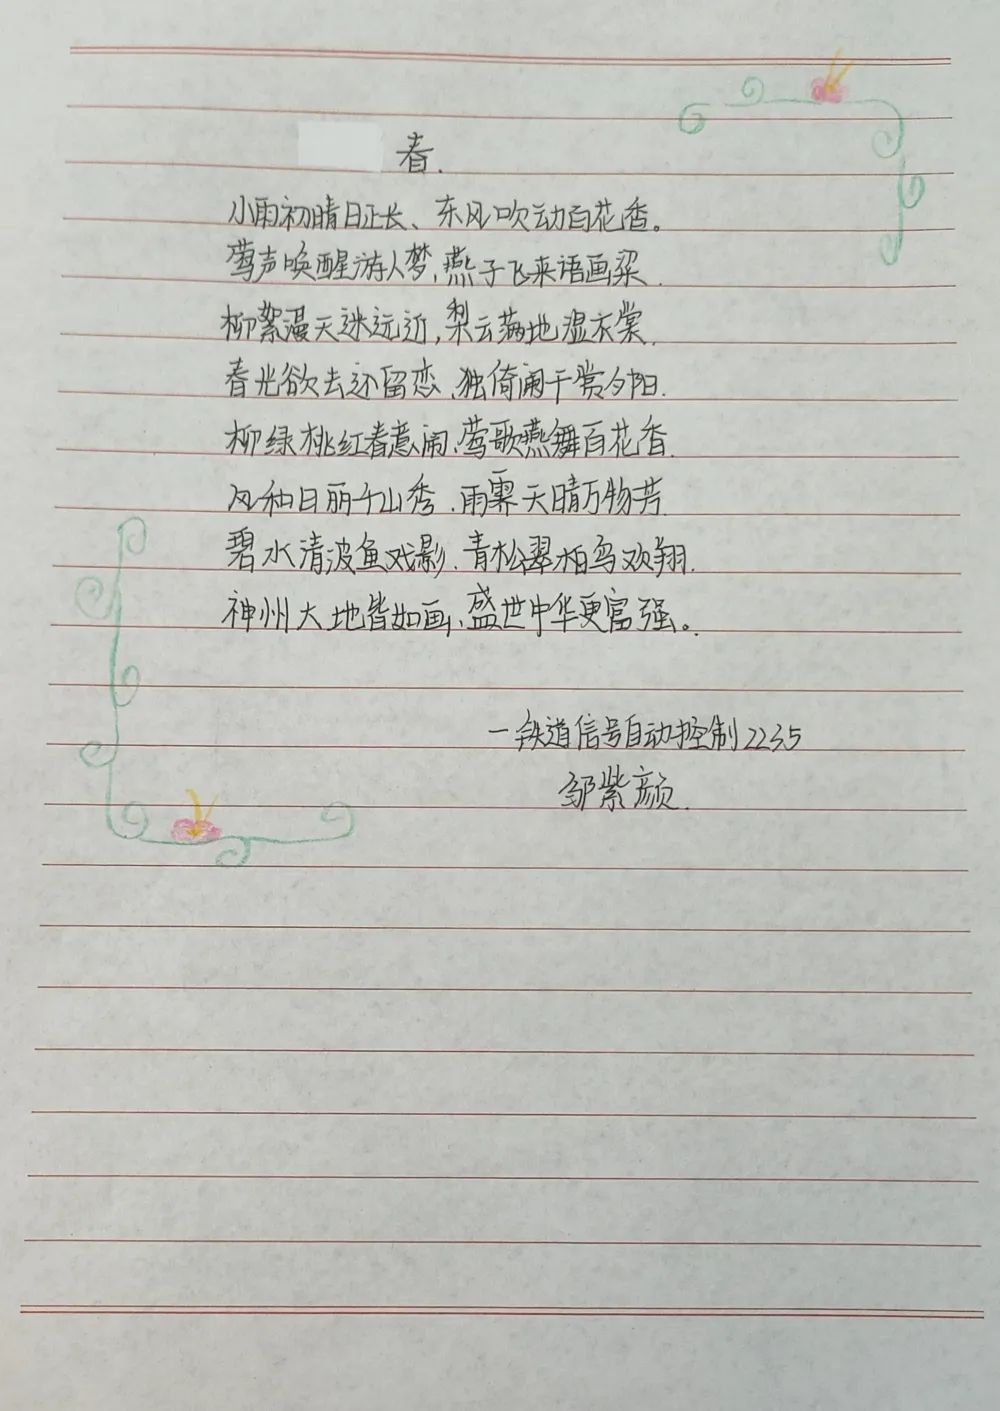 春.
小雨初晴日正长、东风吹动百花香。
莺声唤醒游人梦,燕子飞来语画梁.
柳絮漫天迷远近,梨云满地湿衣裳.
春光欲去还留恋、独倚阑干赏夕阳.
柳绿桃红春意闹、莺歌燕舞百花香.
风和日丽千山秀、雨霁天晴万物芳.
碧水清波鱼戏影、青松翠柏鸟欢翔.
神州大地皆如画、盛世中华更富强。
一铁道信号自动控制2235
邹紫颜.